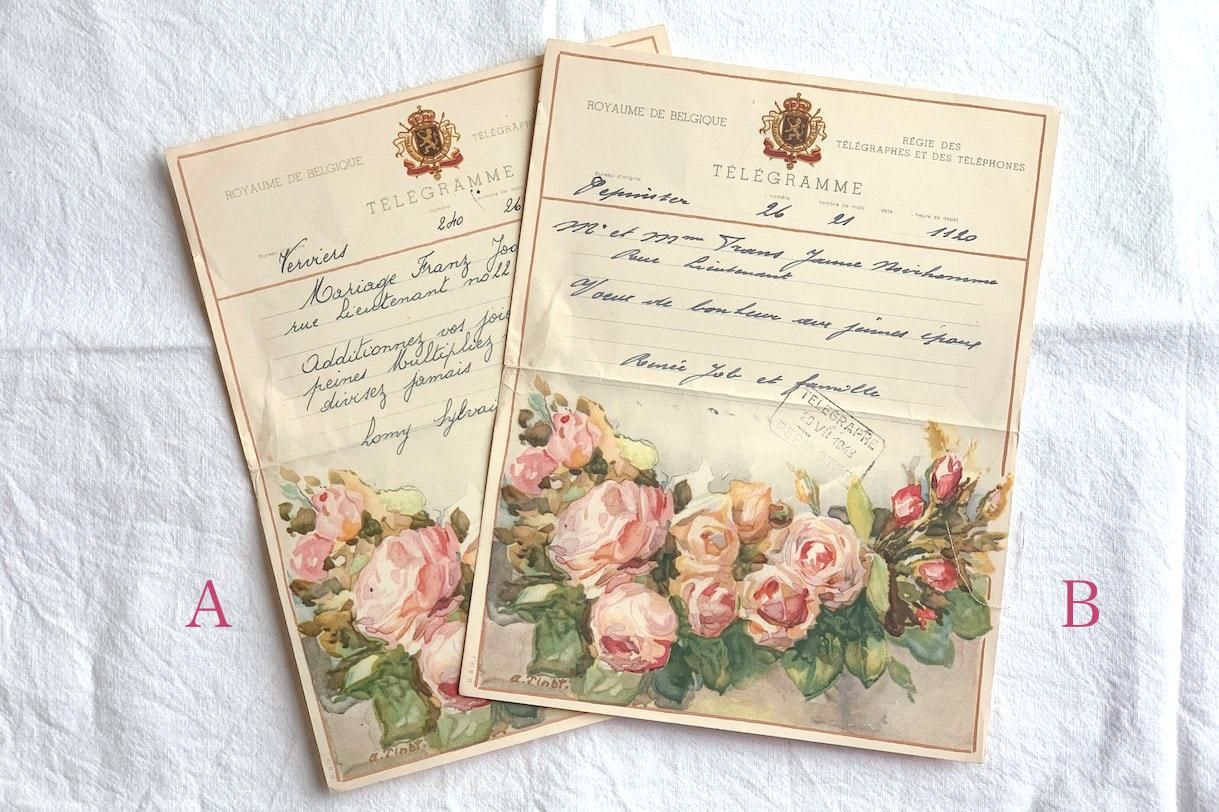 ROYAUME DE BELGIQUE
TÉLÉGRAPH
TÉLÉGRAMME
numéro
nombre de mots
240 26
Verviers
Mariage Franz
rue Lieutenant no 22
Additionnez vos joi
peines Multipliez
divisez jamais
Lomy Sylvai
a. Pinot.
A
ROYAUME DE BELGIQUE
RÉGIE DES
TÉLÉGRAPHES ET DES TÉLÉPHONES
TÉLÉGRAMME
Bureau d'origine
numéro nombre de mots date heure de dépôt
Pepinster 26 21 1120
Mr et Mme Frans
Rue Lieutenant
Voeux de bonheur aux jeunes époux
Renée Job et famille
TÉLÉGRAPHE
10 VII 1943
B